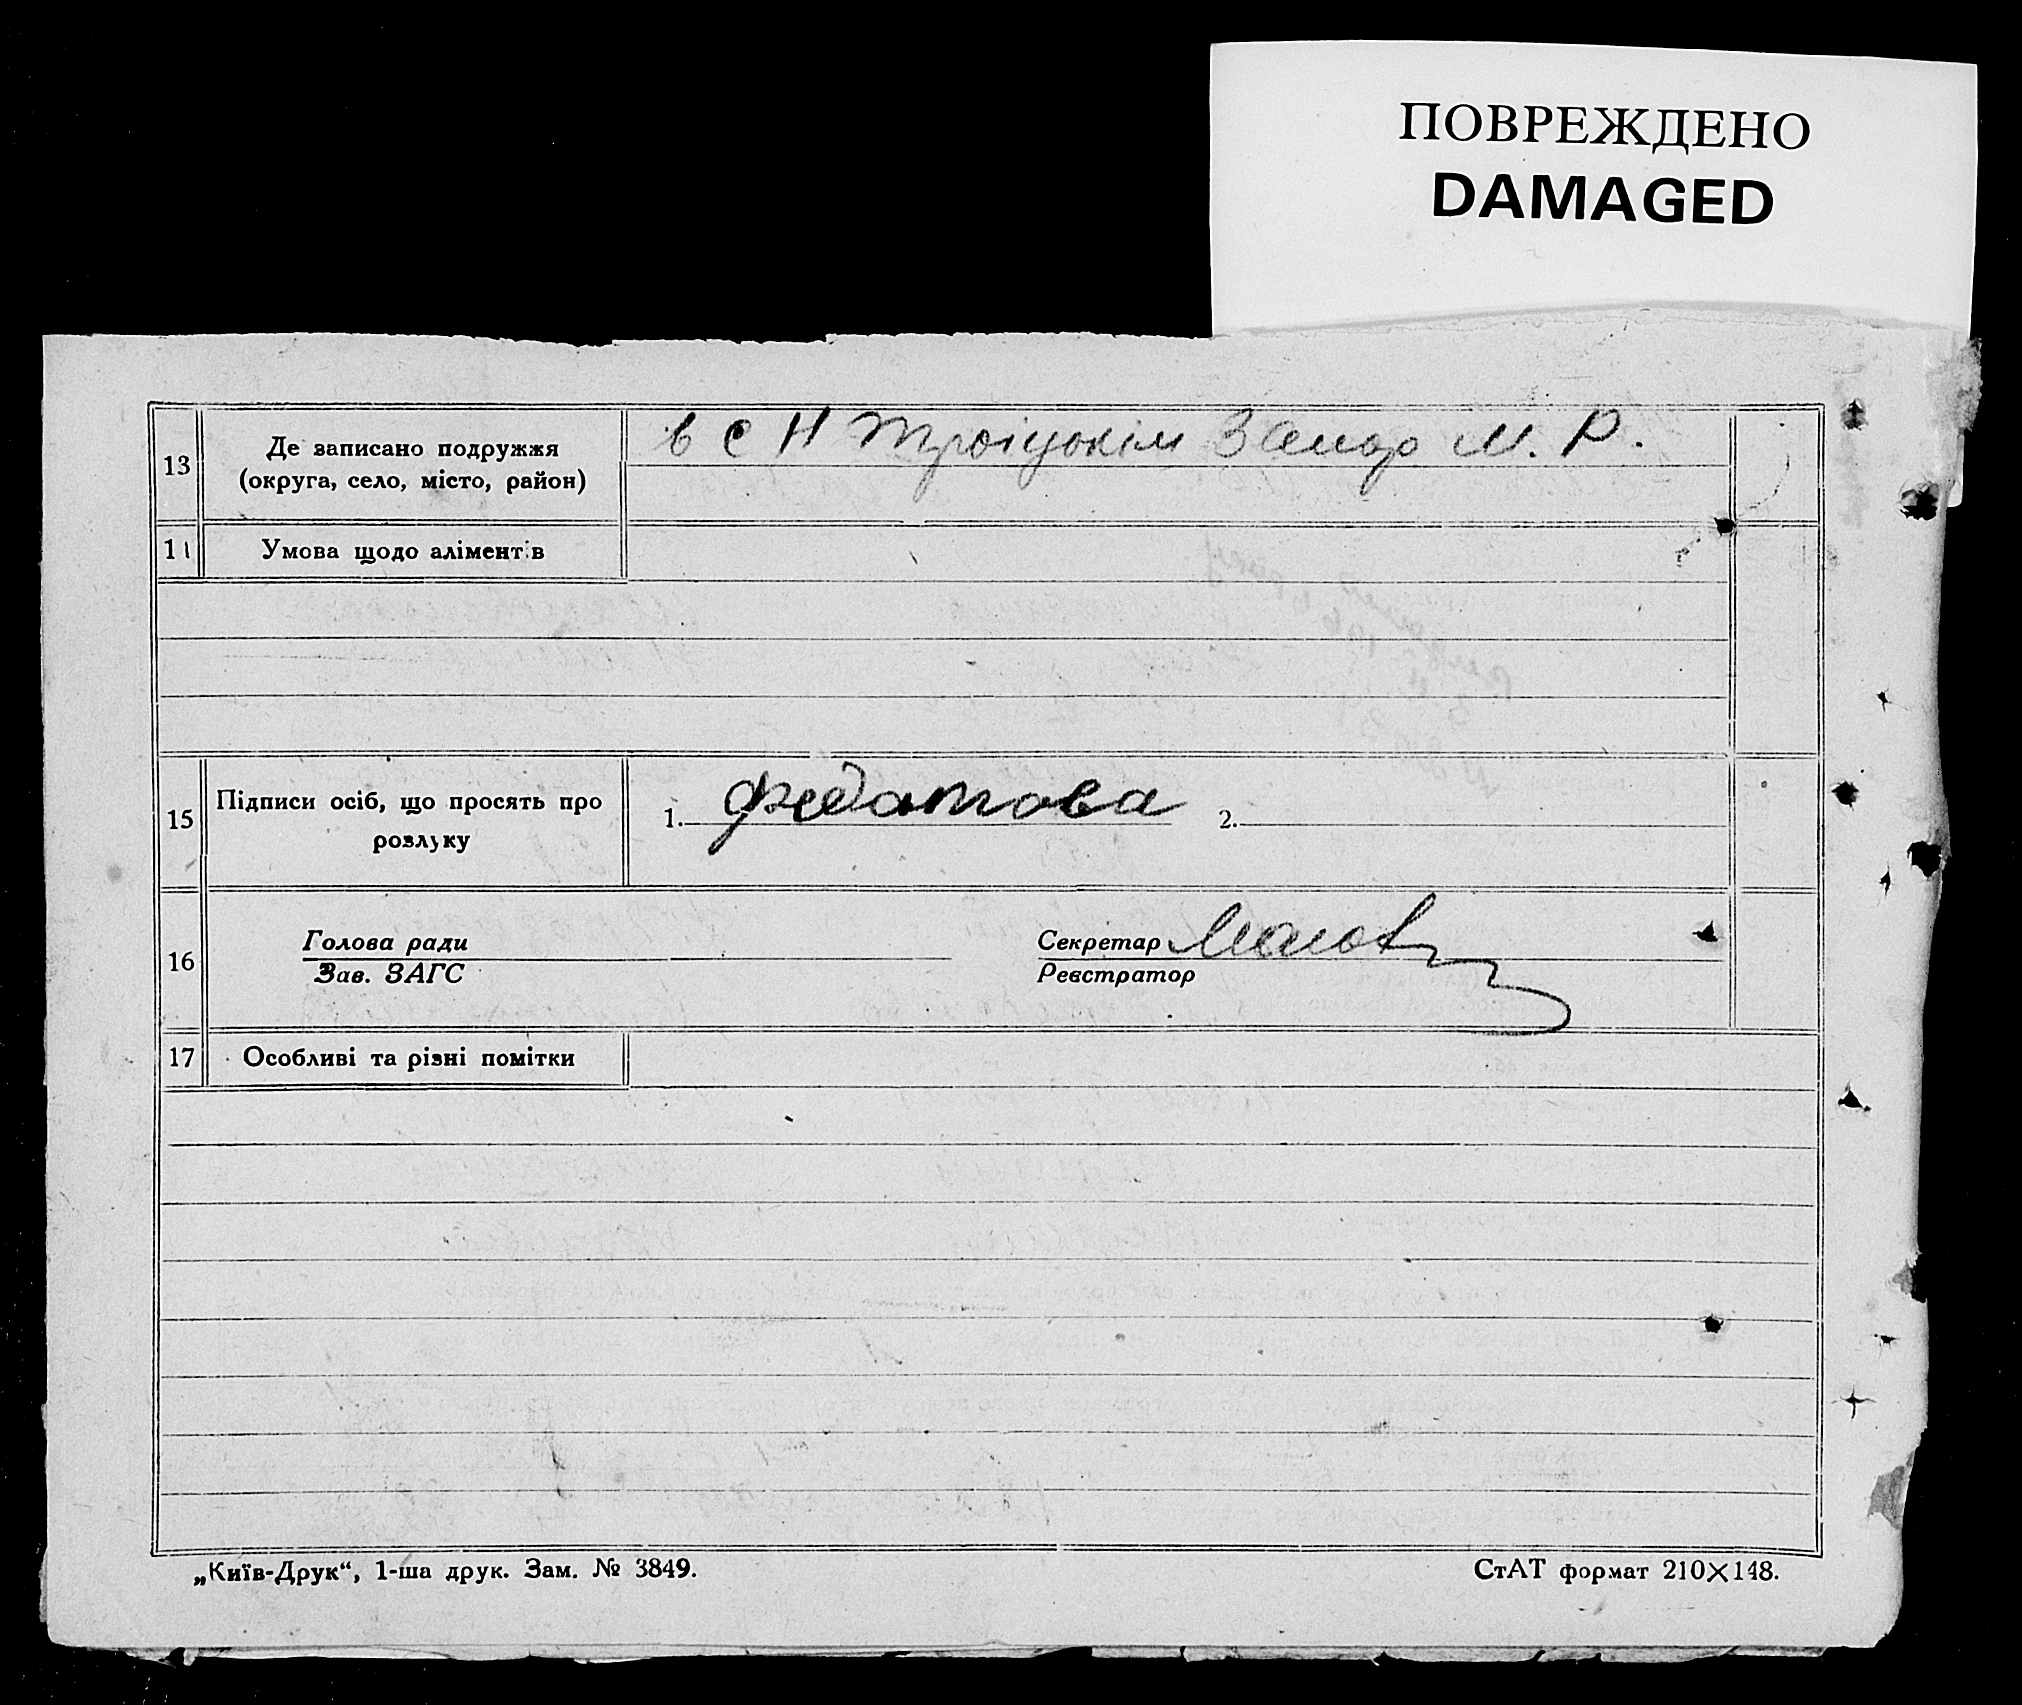 ПОВРЕЖДЕНО
DAMAGED
13
Де записано подружжя
(округа, село, місто, район)
в с Н Троіцькім М. Р.
1
Умова щодо аліментів
15
Підписи осіб, що просять про
розлуку
1. Федотова
2.
16
Голова ради
Зав. ЗАГС
Секретар
Реєстратор
17
Особливі та різні помітки
„Київ-Друк“, 1-ша друк. Зам. № 3849.
СтАТ формат 210×148.